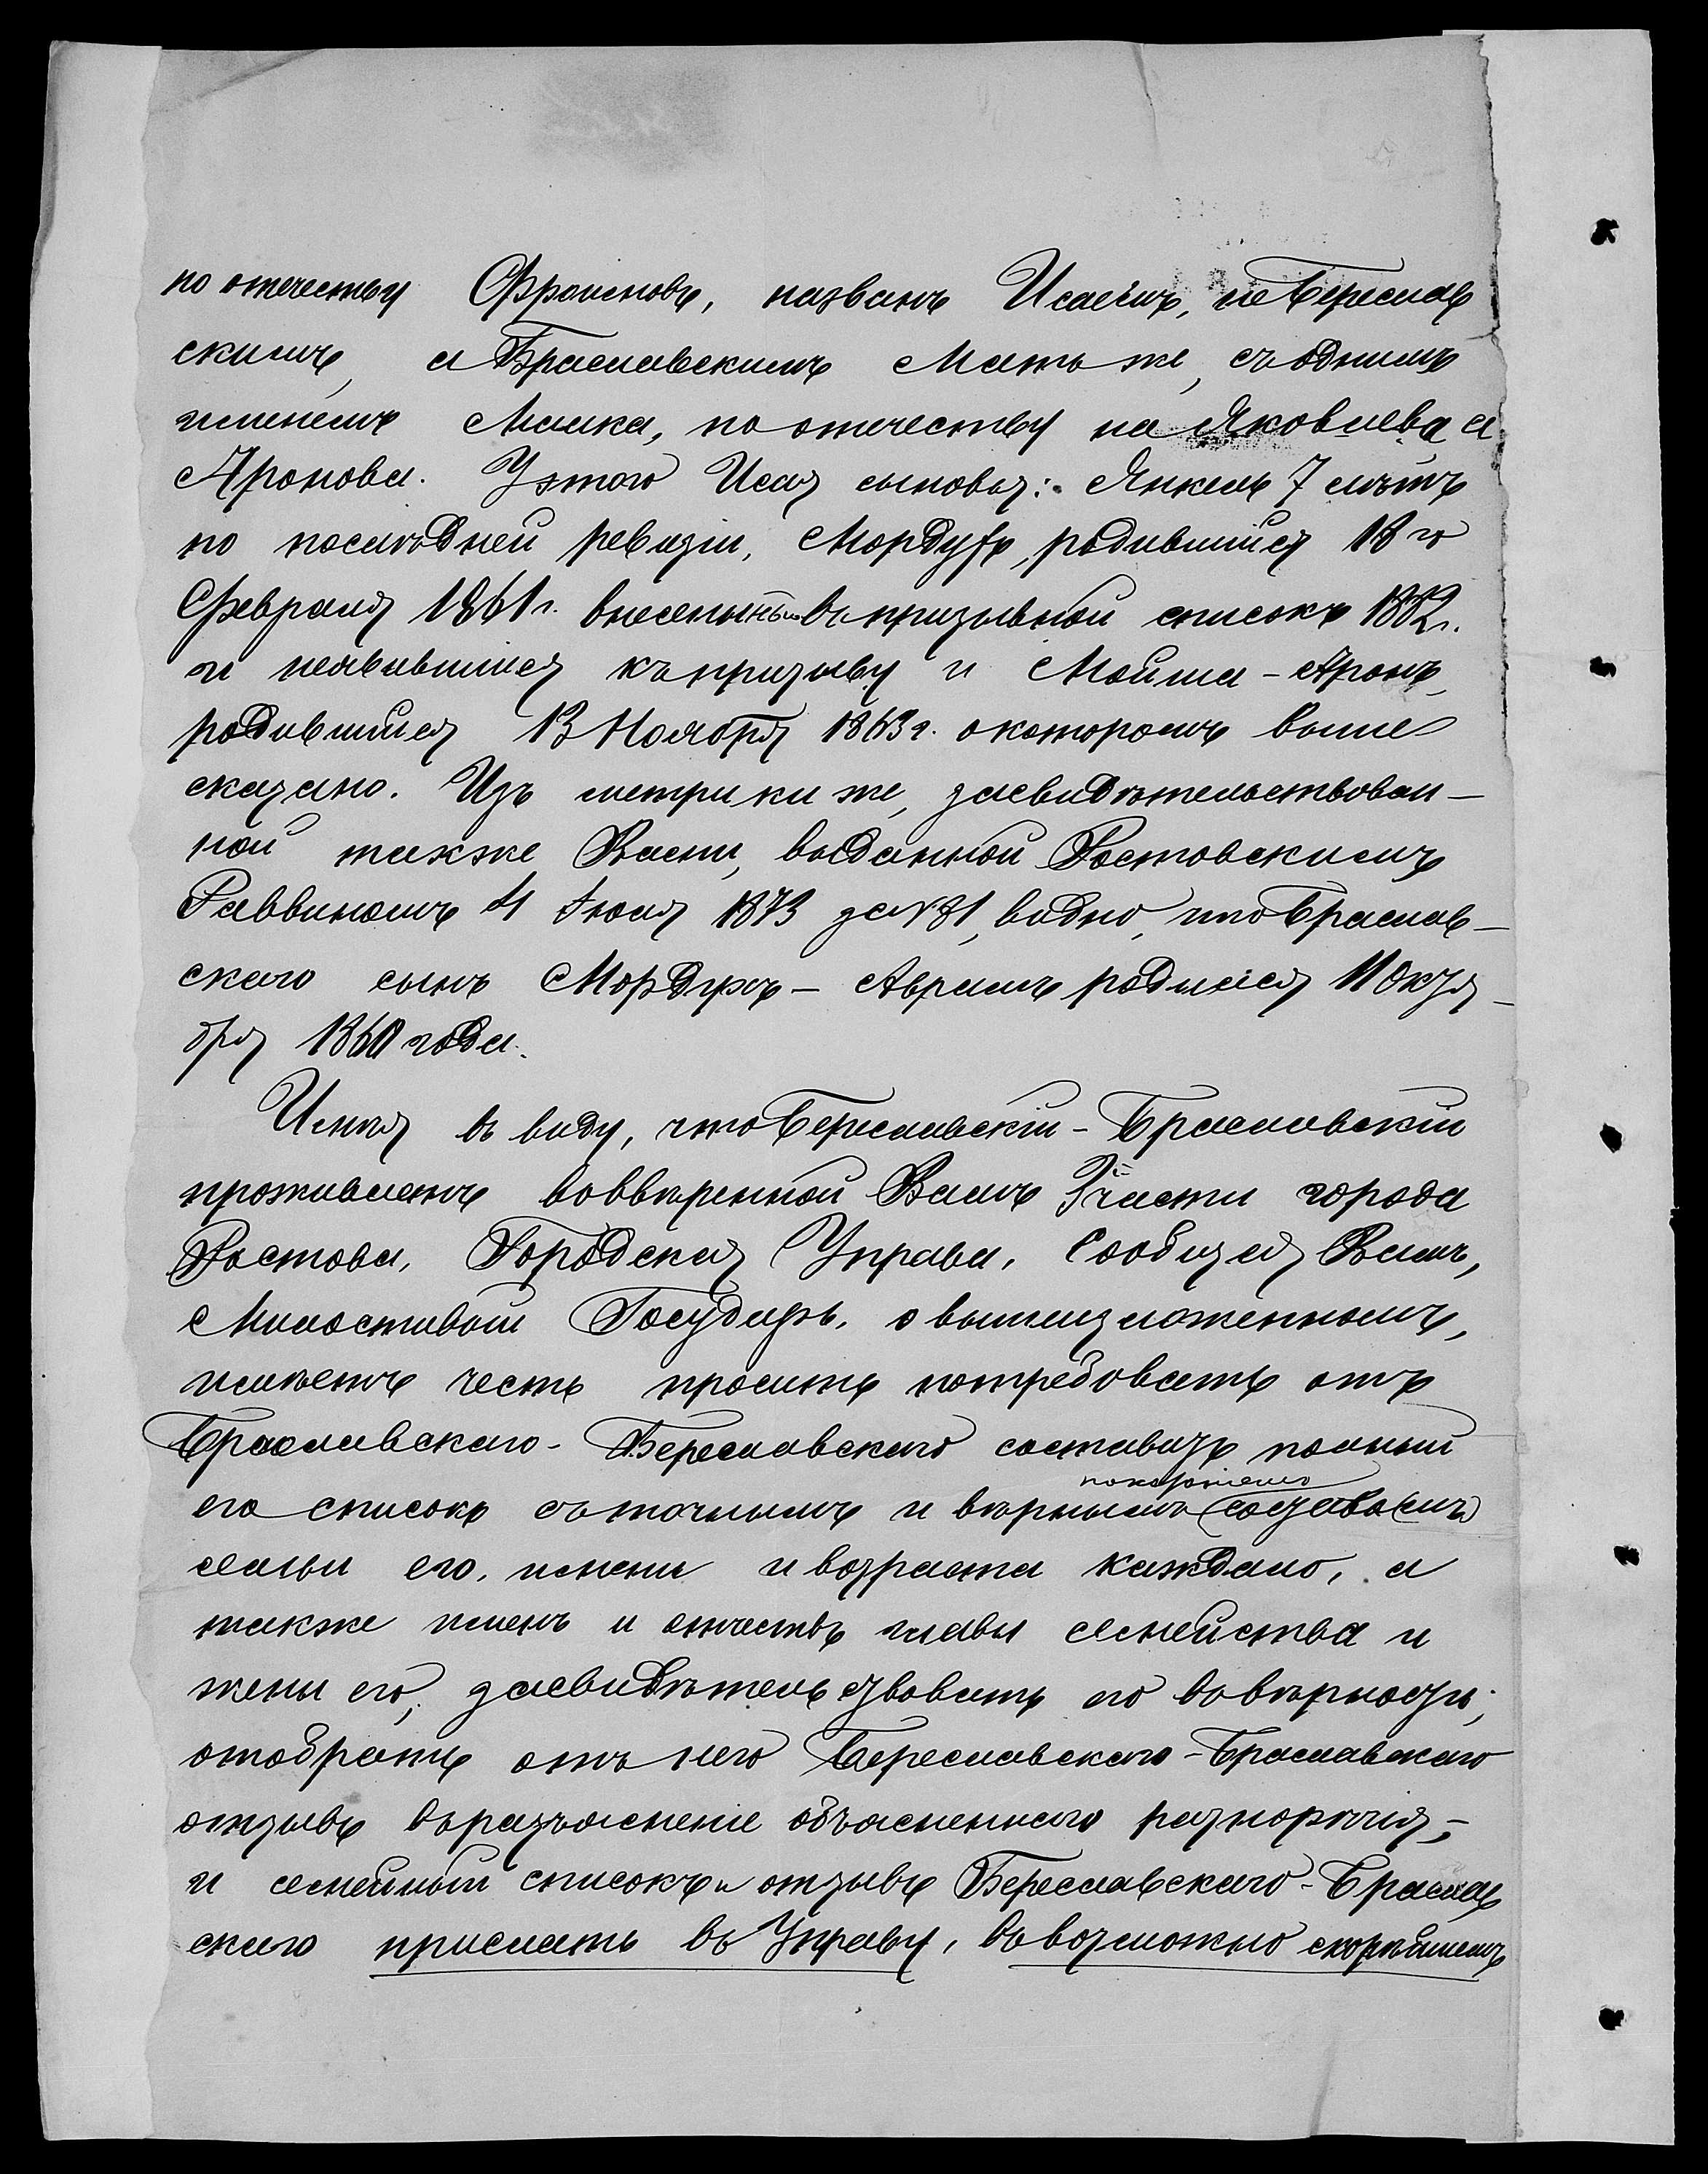 по отечеству Фроимовъ, названъ Исаемъ, не Береслав
скимъ, а Браславскимъ Мать же, съ однимъ
именемъ Малка, по отечеству не Яковлева а
Аронова. У этого Исая сыновья: Янкель 7 лѣтъ
по послѣдней ревизіи, Мордухъ, родившійся 18 го
Февраля 1861 г. внесенный въ призывной списокъ 1882 г.
и неявившійся къ призыву и Мойша - Аронъ,
родившійся 13 Ноября 1863 г. о которомъ выше
сказано. Изъ метрики же, засвидѣтельствован-
ной также Вами, выданной Ростовскимъ
Раввиномъ 4 Іюля 1873 за № 81, видно, что Браслав-
скаго сынъ Мордухъ - Аврамъ родился 11 Октя-
бря 1860 года.
Имѣя въ виду, что Береславскій - Браславскій
проживаетъ во ввѣренной Вамъ 3й части города
Ростова, Городская Управа, сообщая Вамъ,
Милостивый Государь, о вышеизложенномъ,
имѣетъ честь просить потребовать отъ
Браславскаго - Береславскаго составить полный
его списокъ съ точнымъ и вѣрнымъ (составомъ)
семьи его, имени и возраста каждаго, а
также именъ и отчествъ главы семейства и
жены его; засвидѣтельствовать его въ вѣрности;
отобрать отъ него Береславскаго - Браславскаго
отзывъ въ разъясненіе объясненнаго разнорѣчія, -
и семейный списокъ и отзывъ Береславскаго - Браслав
скаго прислать въ Управу, въ возможно скорѣйшемъ